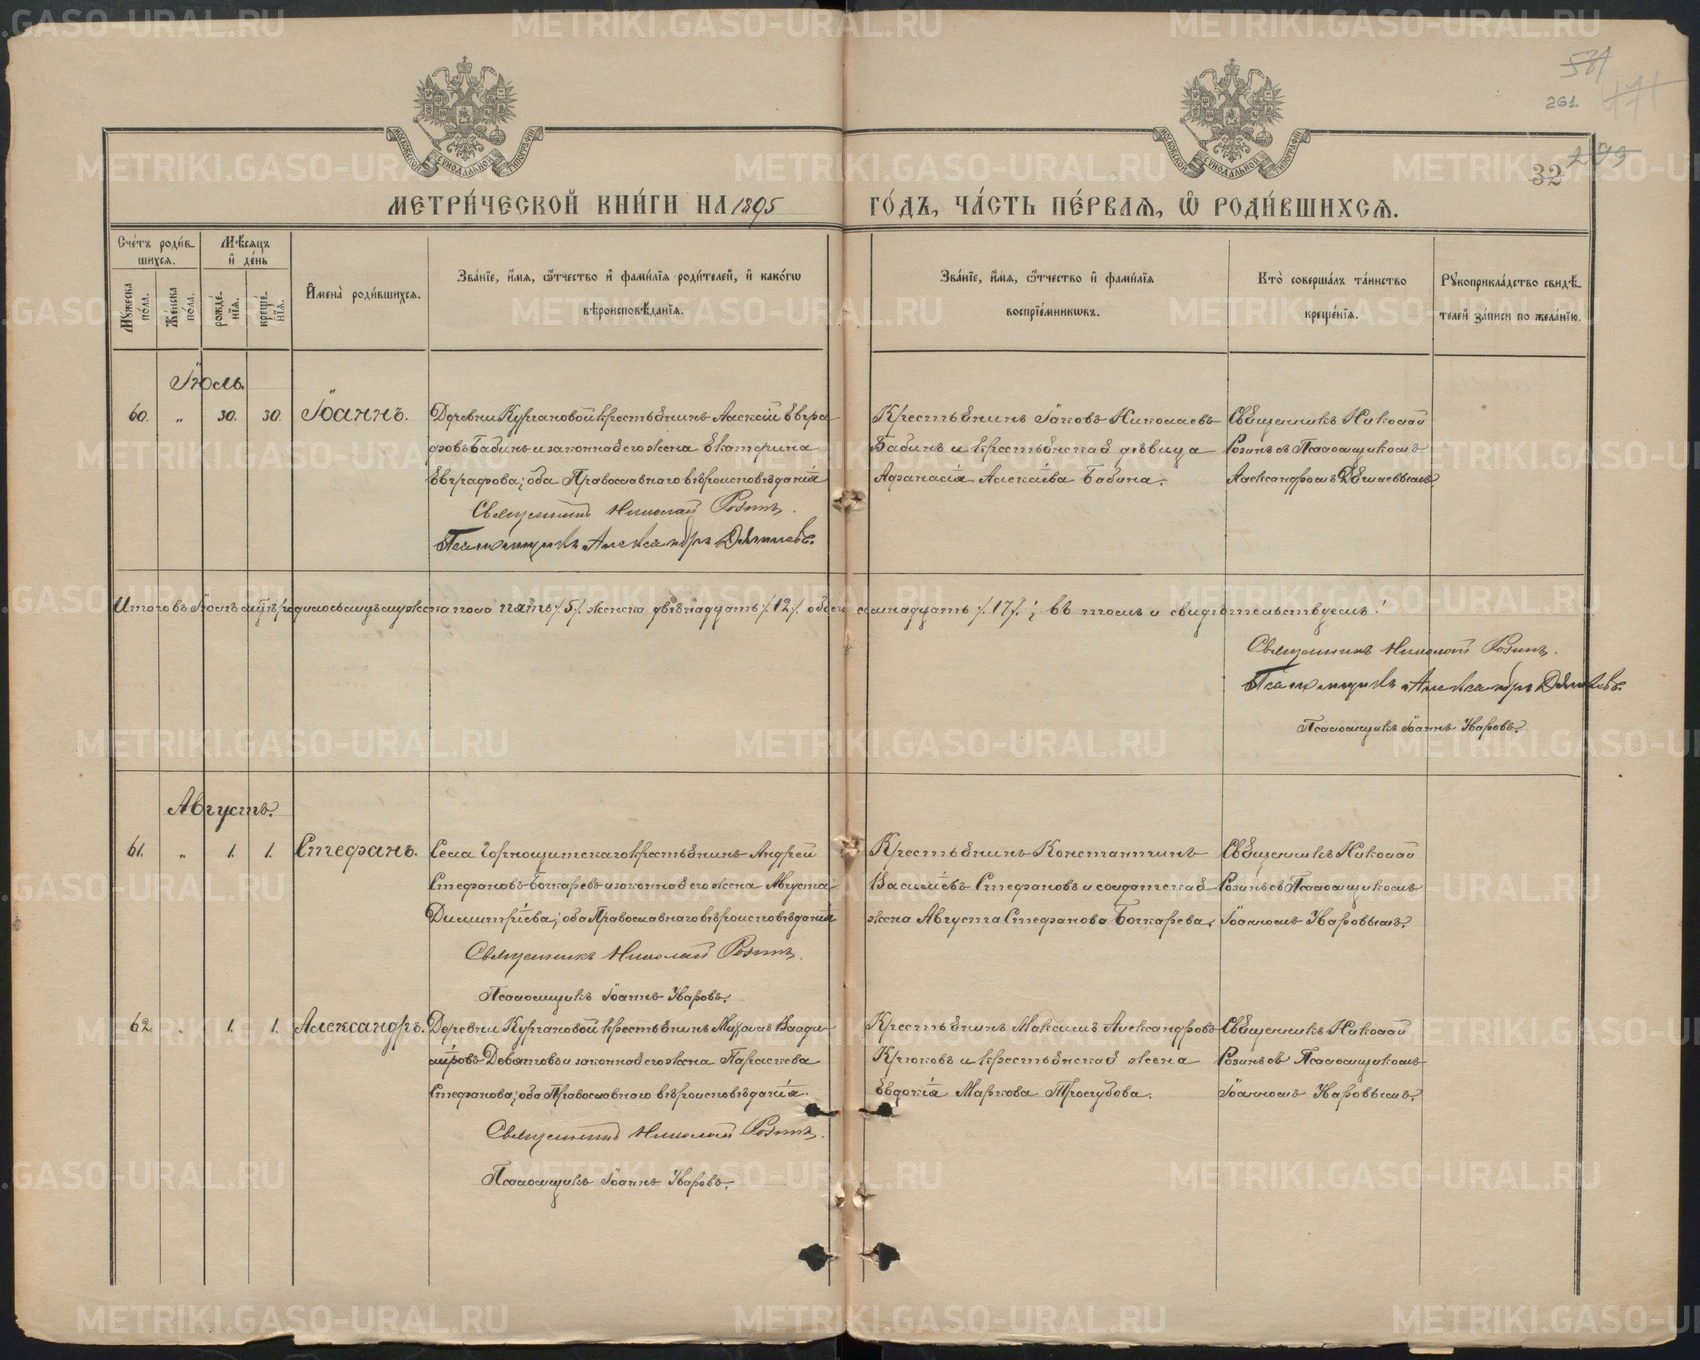 МЕТРИ́ЧЕСКОЙ КНИ́ГИ НА 1895 ГО́ДЪ, ЧА́СТЬ ПЕ́РВАЯ, Ѽ РОДИ́ВШИХСЯ.
261
32
Сче́тъ роди́в-
шихся.
Мѣ́сяцъ
и҆ де́нь
Мꙋ́жеска
по́ла.
Же́нска
по́ла.
рожде́-
нїя.
креще́-
нїя.
И҆мена̀ роди́вшихся.
Зва́нїе, и҆́мя, ѻ҆́тчество и҆ фами́лїя роди́телей, и҆ како́гѡ
вѣроисповѣ́данїя.
Зва́нїе, и҆́мя, ѻ҆́тчество и҆ фами́лїя
воспрїе́мникѡвъ.
Кто̀ соверша́лъ та́инство
креще́нїя.
Рꙋкоприкла́дство свидѣ́-
телей за́писи по жела́нїю.
Іюль.
60. „ 30. 30. Іоаннъ.
Деревни Кургановой крестьянинъ Алексѣй Евгра-
фовъ Бабинъ и законная его жена Екатерина
Евграфова; оба Православнаго вѣроисповѣданія
Священникъ Николай Розинъ.
Псаломщикъ Александръ Дягилевъ.
Крестьянинъ Іаковъ Николаевъ
Бабинъ и крестьянская дѣвица
Афанасія Алексіева Бабина.
Священникъ Николай
Розинъ съ Псаломщикомъ
Александромъ Дягилевымъ
Итого въ Іюлѣ мцѣ родилось мужска пола пять /5/. женска двѣнадцать /12/. обоего семнадцать /17/.; въ томъ и свидѣтельствуемъ:
Священникъ Николай Розинъ.
Псаломщикъ Александръ Дягилевъ.
Псаломщикъ Іоаннъ Уваровъ.
Августъ.
61. „ 1. 1. Стефанъ.
Села Горнощитскаго крестьянинъ Андрей
Стефановъ Бочкаревъ и законная его жена Августа
Димитріева; оба Православнаго вѣроисповѣданія
Священникъ Николай Розинъ.
Псаломщикъ Іоаннъ Уваровъ.
Крестьянинъ Константинъ
Васильевъ Стефановъ и солдатская
жена Августа Стефанова Бочкарева.
Священникъ Николай
Розинъ съ Псаломщикомъ
Іоанномъ Уваровымъ.
62. „ 1. 1. Александръ.
Деревни Кургановой крестьянинъ Михаилъ Влади-
міровъ Девятовъ и законная его жена Параскева
Стефанова; оба Православнаго вѣроисповѣданія.
Священникъ Николай Розинъ.
Псаломщикъ Іоаннъ Уваровъ.
Крестьянинъ Максимъ Александровъ
Крюковъ и крестьянская жена
Евдокія Маркова Трегубова.
Священникъ Николай
Розинъ съ Псаломщикомъ
Іоанномъ Уваровымъ.
METRIKI.GASO-URAL.RU